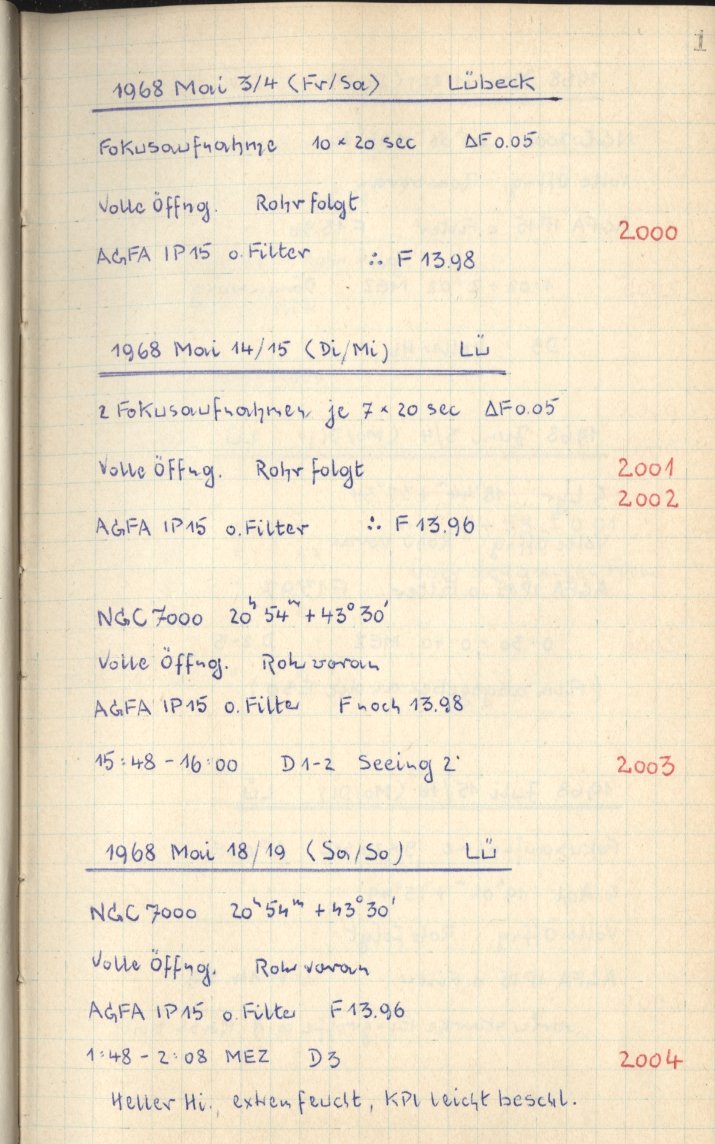 1
1968 Mai 3/4 (Fr/Sa) Lübeck
Fokusaufnahme 10 × 20 sec ΔF 0.05
Volle Öffng. Rohr folgt
2000
AGFA IP15 o. Filter ∴ F 13.98
1968 Mai 14/15 (Di/Mi) Lü
2 Fokusaufnahmen je 7 × 20 sec ΔF 0.05
Volle Öffng. Rohr folgt 2001
2002
AGFA IP15 o. Filter ∴ F 13.96
NGC 7000 20ʰ 54ᵐ +43° 30'
Volle Öffng. Rohr voran
AGFA IP15 o. Filter F noch 13.98
15:48 - 16:00 D 1-2 Seeing 2 2003
1968 Mai 18/19 (Sa/So) Lü
NGC 7000 20ʰ 54ᵐ +43° 30'
Volle Öffng. Rohr voran
AGFA IP15 o. Filter F 13.96
1:48 - 2:08 MEZ D3 2004
Heller Hi., extrem feucht, KPl leicht beschl.